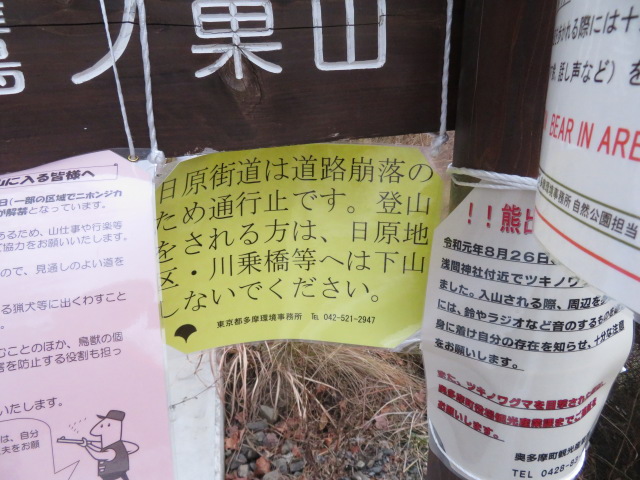 ノ巣山
山に入る皆様へ
日(一部の区域でニホンジカ
が解禁となっています。
あるため、山仕事や行楽等
ご協力をお願いいたします。
ので、見通しのよい道を
る猟犬等に出くわすこと
むことのほか、鳥獣の個
害を防止する役割も担っ
いたします。
は、自分
夫をお願
日原街道は道路崩落の
ため通行止です。登山
をされる方は、日原地
区・川乗橋等へは下山
しないでください。
東京都多摩環境事務所 TEL 042-521-2947
!!熊出
令和元年8月26日、
浅間神社付近でツキノワ
ました。入山される際、周辺を
には、鈴やラジオなど音のするものを
身に着け自分の存在を知らせ、十分な注意
をお願いします。
また、ツキノワグマを目撃された
お願いします。
奥多摩町観光産業
TEL 0428-83
かれる際には十
話し声など)を
BEAR IN AREA
事務所 自然公園担当